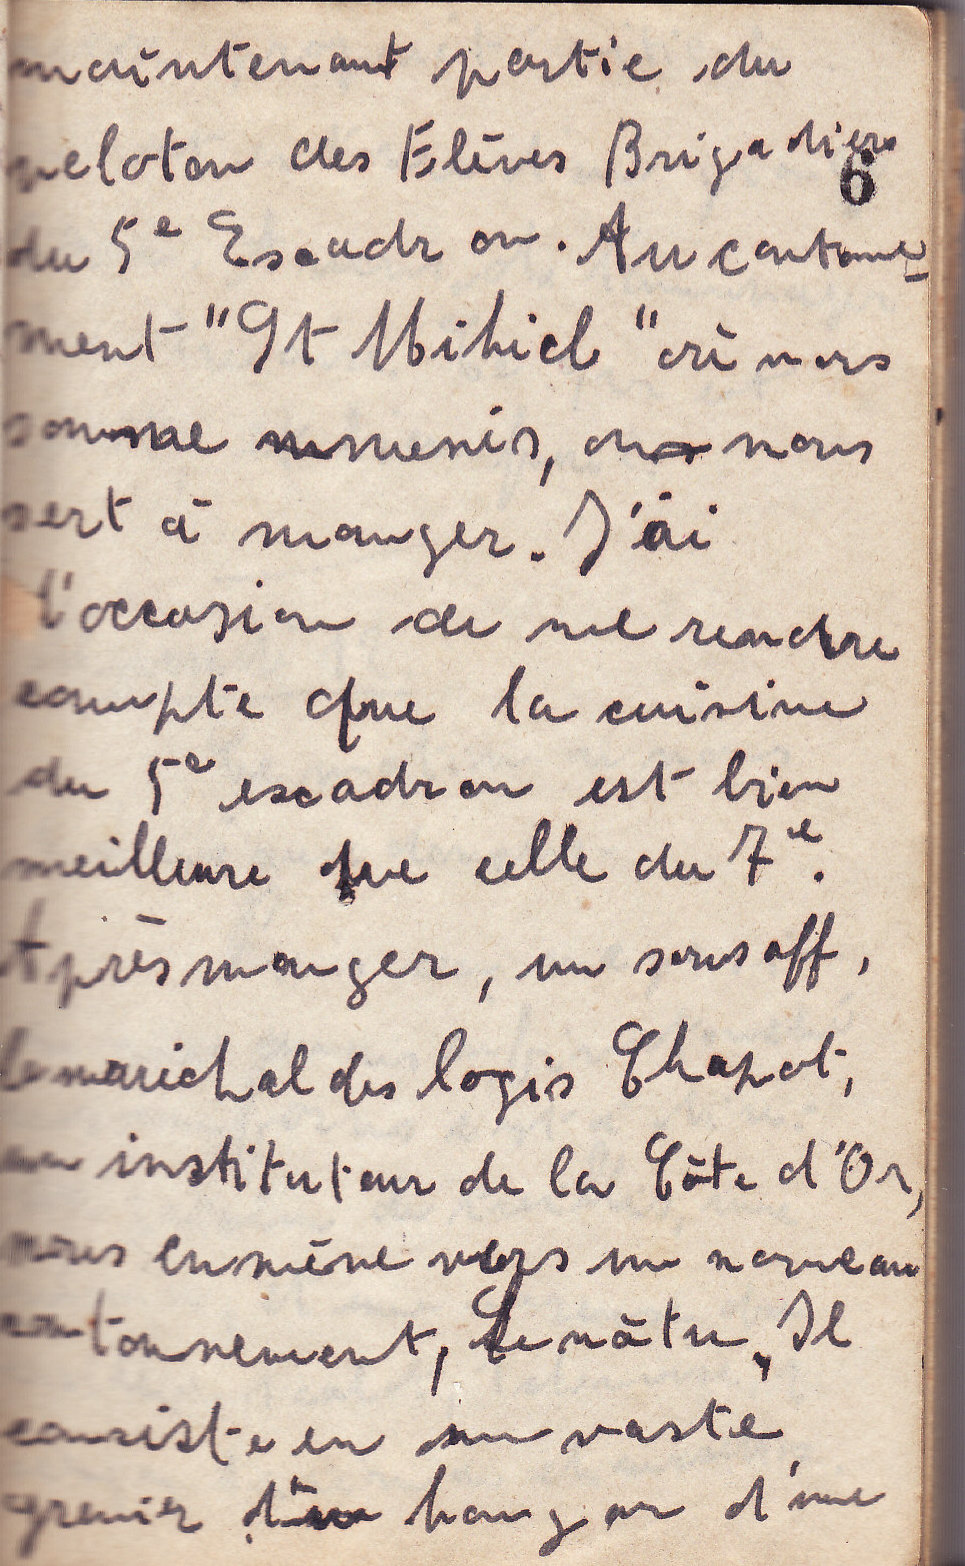 maintenant partie du
peloton des Elèves Brigadiers
6
du 5e Escadron. Au cantonne-
ment "St Mihiel" où nous
somme menés, on nous
sert à manger. J'ai
l'occasion de me rendre
compte que la cuisine
du 5e escadron est bien
meilleure que celle du 7e.
Après manger, un sousoff,
le maréchal des logis Chapot,
un instituteur de la Côte d'Or,
nous emmène vers un nouveau
cantonnement, Il
consiste en un vaste
grenier hangar d'une